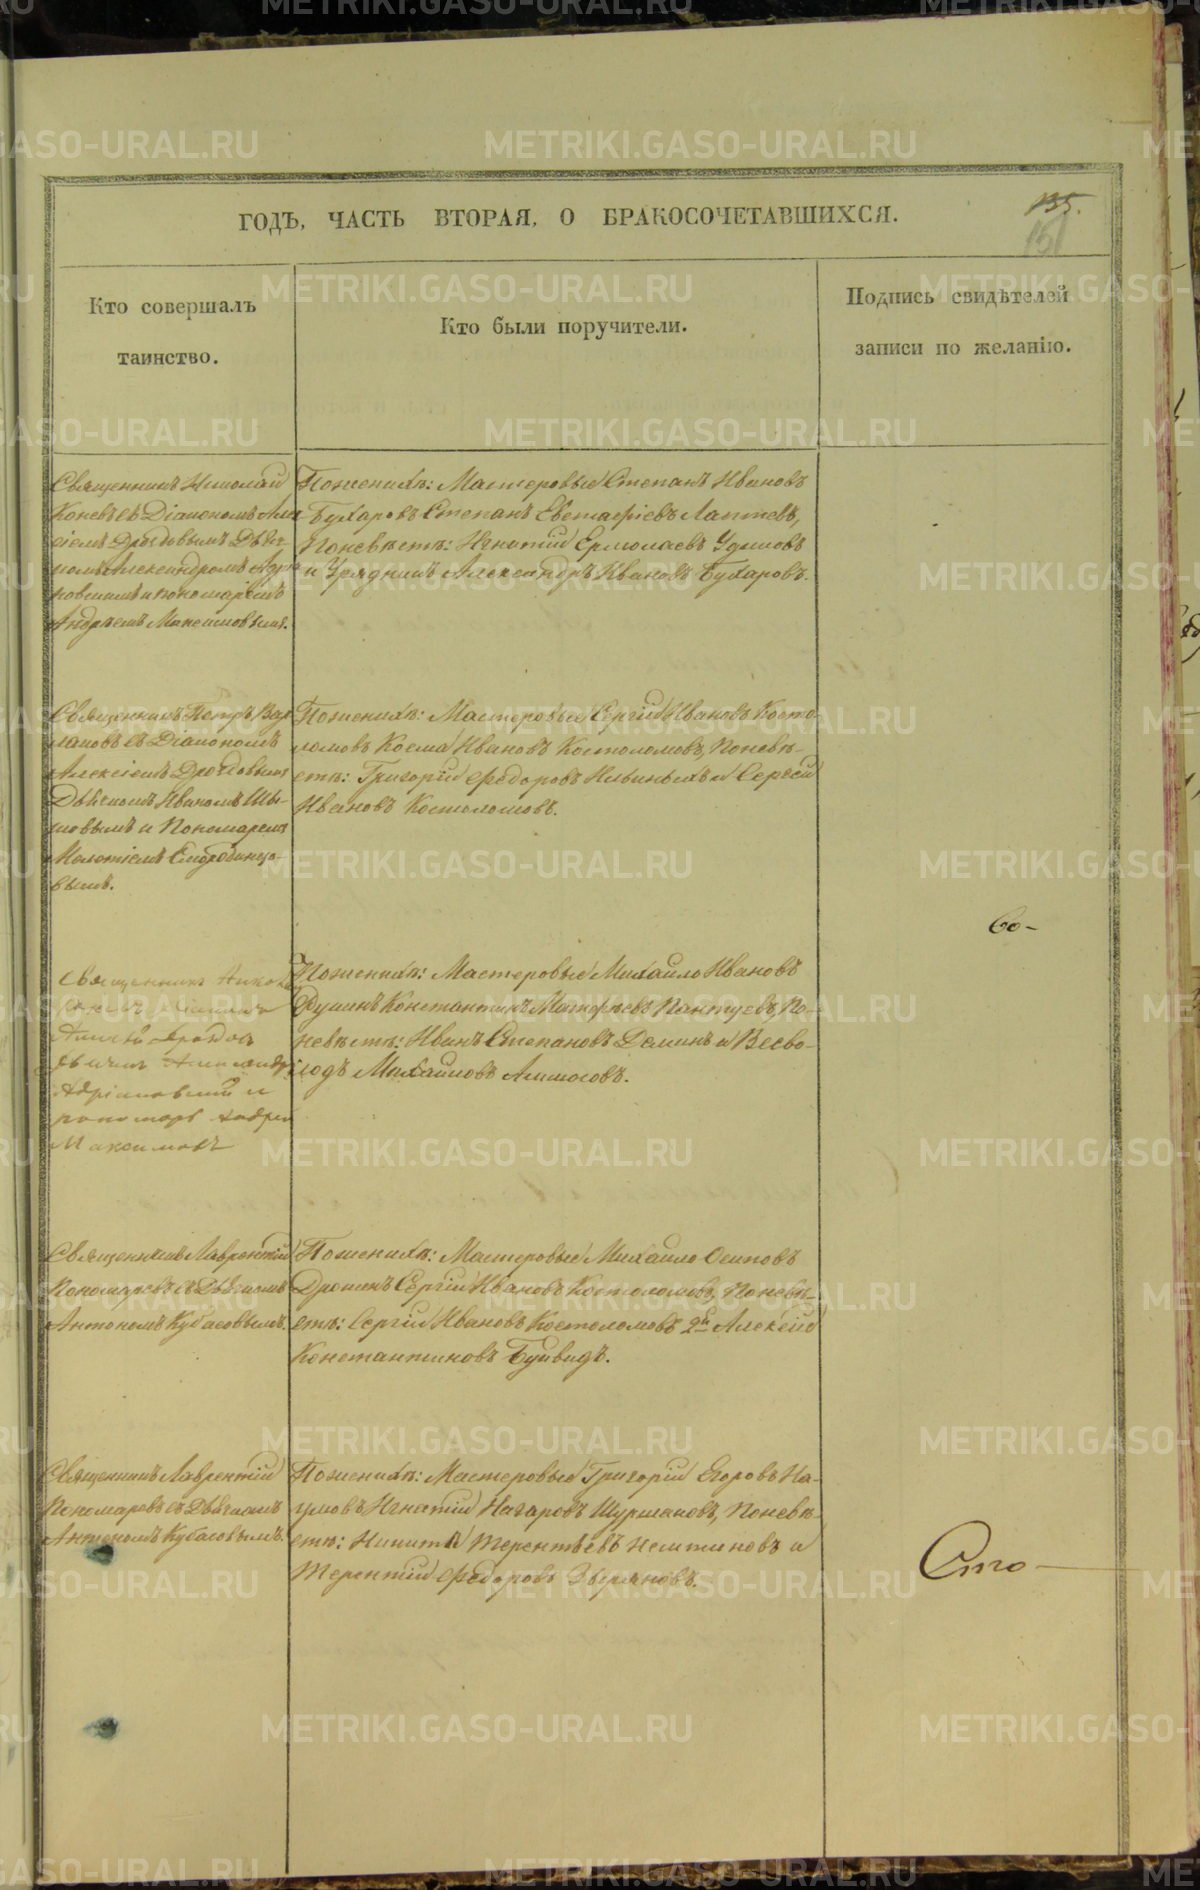 ГОДЪ, ЧАСТЬ ВТОРАЯ, О БРАКОСОЧЕТАВШИХСЯ.
135.
151
Кто совершалъ
таинство.
Кто были поручители.
Подпись свидѣтелей
записи по желанію.
Священникъ Николай
Коневъ съ Діакономъ Але
ксіемъ Дроздовымъ Дьяч
комъ Александромъ Адріа
новскимъ и пономаремъ
Андреемъ Максимовымъ.
Пожениху: Мастеровые Степанъ Ивановъ
Бухаровъ Степанъ Евстафіевъ Лаптевъ,
Поневѣстѣ: Игнатій Ермолаевъ
и Урядникъ Александръ Ивановъ Бухаровъ.
Священникъ Петръ
съ Діакономъ
Алексіемъ Дроздовымъ
Дьячкомъ Иваномъ Шы-
шовымъ и Пономаремъ
Смородинцо-
вымъ.
Пожениху: Мастеровые Сергій Ивановъ Косто
ломовъ Косма Ивановъ Костоломовъ, Поневѣ-
стѣ: Григорій Федоровъ Ильиныхъ и Сергѣй
Ивановъ Костоломовъ.
Священникъ
Алексѣй Дроздов
дьячекъ Александръ
Адріановскій и
пономарь Андрей
Максимовъ
Пожениху: Мастеровые Михайло Ивановъ
Константинъ Матфѣевъ Пантуевъ, По-
невѣстѣ: Иванъ Степановъ Деминъ и Всево-
лодъ Михайловъ
Священникъ Лаврентій
Пономаревъ съ Дьячкомъ
Антономъ Кубасовымъ.
Пожениху: Мастеровые Михайло Осиповъ
Сергій Ивановъ Костоломовъ, Поневѣ-
стѣ: Сергій Ивановъ Костоломовъ 2й Алексѣй
Константиновъ Буйвидъ.
Священникъ Лаврентій
Пономаревъ съ Дьячкомъ
Антономъ Кубасовымъ.
Пожениху: Мастеровые Григорій Егоровъ На-
умовъ Игнатій Назаровъ Шурмановъ, Поневѣ-
стѣ: Никита Терентьевъ и
Терентій Федоровъ Зыряновъ.
Со-
Сто
METRIKI.GASO-URAL.RU